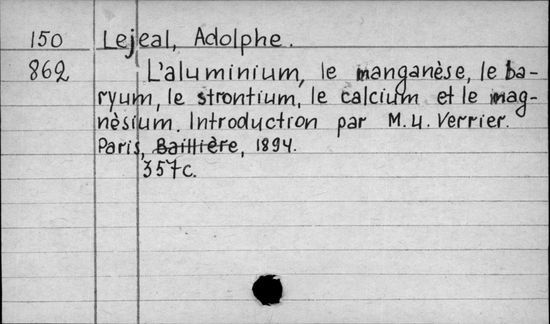 150 Lejeal, Adolphe.
862 L'aluminium, le manganèse, le ba-
ryum, le strontium, le calcium et le mag-
nèsium. Introduction par M.U. Verrier.
Paris, Baillière, 1894.
357c.